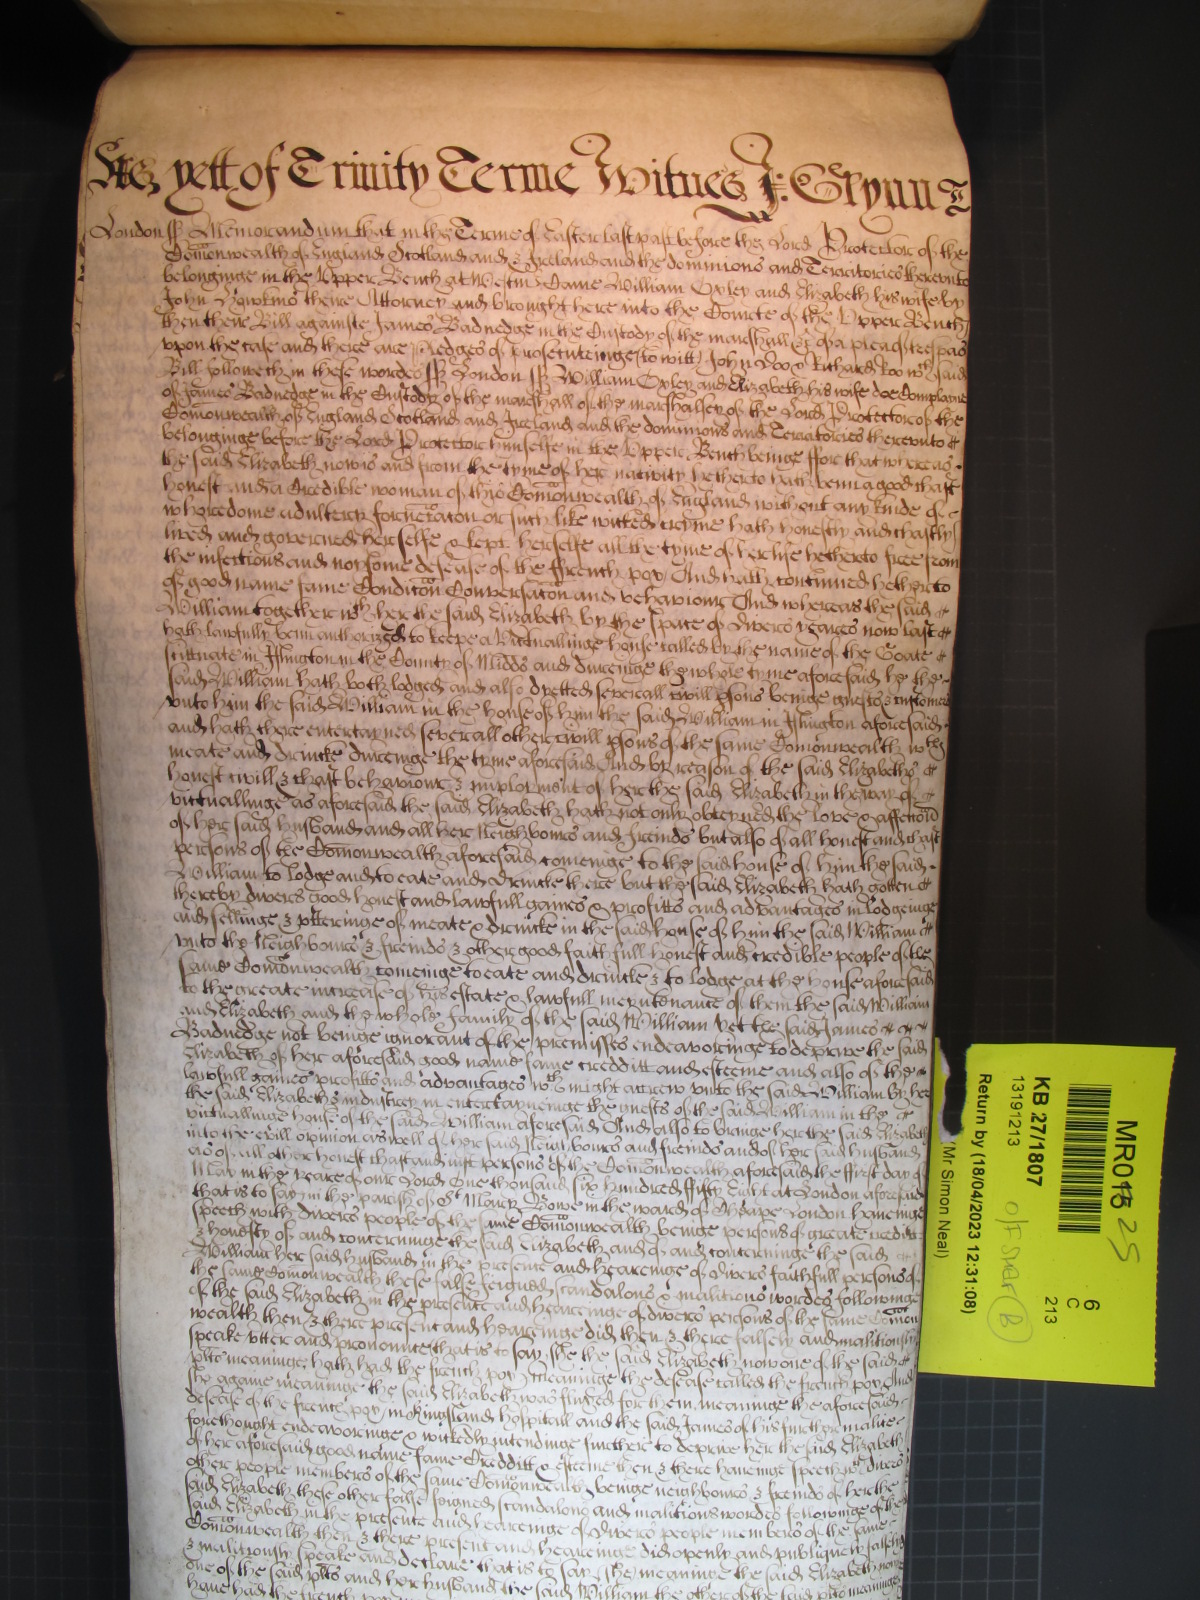 As yett of Trinity Terme Witnes J: Glynn
London ss Memorandum that in the Terme of Easter last past before the Lord Protector of the
Comonwealth of England Scotland and Ireland and the dominions and Territories thereunto
belonginge in the Upper Bench at Westm Came William Oxley and Elizabeth his wife by
John Hawkins theire Attorney and brought here into the Courte of the Upper Bench
then their Bill againste James Badnedge in the Custody of the marshall &c of a plea of trespas
upon the case and there are Pledges of prosecuteinge to witt John Doo & Richard Roo wch said
Bill followeth in these wordes ss London ss William Oxley and Elizabeth his wife doe Complaine
of James Badnedge in the Custody of the marshall of the marshalsey of the Lord Protector of the
Comonwealth of England Scotland and Ireland and the dominions and Territories thereunto
belonginge before the Lord Protector himselfe in the Upper Bench beinge ffor that whereas
the said Elizabeth now is and from the tyme of her nativity hetherto hath benn a good chast
honest and a Credible woman of this Comonwealth of England without any kinde of
whoredome adultery fornicaton or such like wicked cryme hath honestly and chastly
lived and governed her selfe & kept herselfe all the tyme of her life hetherto free from
the infectious and noysome desease of the ffrench pox And hath continued hetherto
of good name fame Condicon Conversacon and behaviour And whereas the said
William together wth her the said Elizabeth by the space of divers yeares now last
hath lawfully benn authorized to keepe a Victuallinge house called by the name of the Goate
scittuate in Islington in the County of Midds and dureinge the whole tyme aforesaid he the
said William hath both lodged and also dyetted severall civill psons beinge guests & customers
unto him the said William in the house of him the said William in Islington aforesaid
and hath there entertayned severall other civill psons of the same Comonwealth wth
meate and drincke dureinge the tyme aforesaid And by reason of the said Elizabeths
honest civill & chast behaviour & imploymt of her the said Elizabeth in the way of
victuallinge as aforesaid the said Elizabeth hath not only obteyned the love & affection
of her said husband and all her Neighbours and freinds but also of all honest and chast
persons of the Comonwealth aforesaid comeinge to the said house of him the said
William to lodge and to eate and drincke there but the said Elizabeth hath gotten
thereby divers good honest and lawfull gaines & profitts and advantages in lodgeinge
and sellinge & uttereinge of meate & drincke in the said house of him the said William
unto the Neighbours & freinds & other good faithfull honest and credible people of the
same Comonwealth comeinge to eate and drincke & to lodge at the house aforesaid
to the greate increase of his estate & lawfull meyntenance of them the said William
and Elizabeth and the whole family of the said William Yet the said James
Badnedge not beinge ignorant of the premisses endeavoreinge to deprive the said
Elizabeth of her aforesaid good name fame credditt and esteeme and also of the
lawfull gaines profitts and advantages wch might accrew unto the said William by her
the said Elizabeths industrey in entertayneinge the guests of the said William in the
victuallinge house of the said William aforesaid And also to bringe her the said Elizabeth
into the evill opinion as well of her said Neighbours and freinds and of her said husband
as of all other honest chast and just persons of the Comonwealth aforesaid the ffirst day of
May in the yeare of our Lord One thousand six hundred fifty eight at London aforesaid
that is to say in the parish of St Mary Bowe in the ward of Cheape London haveinge
speech with divers people of the same Comonwealth beinge persons of greate creditt
& honesty of and concerninge the said Elizabeth and of and concerninge the said
William her said husband in the presence and heareinge of divers faithfull persons of
the same Comonwealth these false feigned scandalous & malitious wordes followinge
of the said Elizabeth in the presence and heareinge of divers persons of the same Comon
wealth then & there present and heareinge did then & there falsely and malitiously
speake utter and pronounce that is to say She the said Elizabeth now one of the said
plts meaninge hath had the french pox meaninge the desease called the french pox And
she againe meaninge the said Elizabeth was fluxed for them meaninge the aforesaid
desease of the french pox in Kingsland hospitall and the said James of his further malice
forethought endeavoringe & wickedly intendinge further to deprive her the said Elizabeth
of her aforesaid good name fame Credditt & esteeme then & there haveinge speech wth divers
other people members of the same Comonwealth beinge neighbours & freinds of her the
said Elizabeth these other false feigned scandalous and malitious wordes followinge of the
said Elizabeth in the presence and heareinge of divers people members of the same
Comonwealth then & there present and heareinge did openly and publiquely falsely
& malitiously speake and declare that is to say She meaninge the said Elizabeth now
one of the said plts and her husband the said William the other of the said plts meaninge
have had the french pox
MR015 25
6
C
213
KB 27/1807
13191213
O/F Shelf (B)
Return by (18/04/2023 12:31:08)
(Mr Simon Neal)